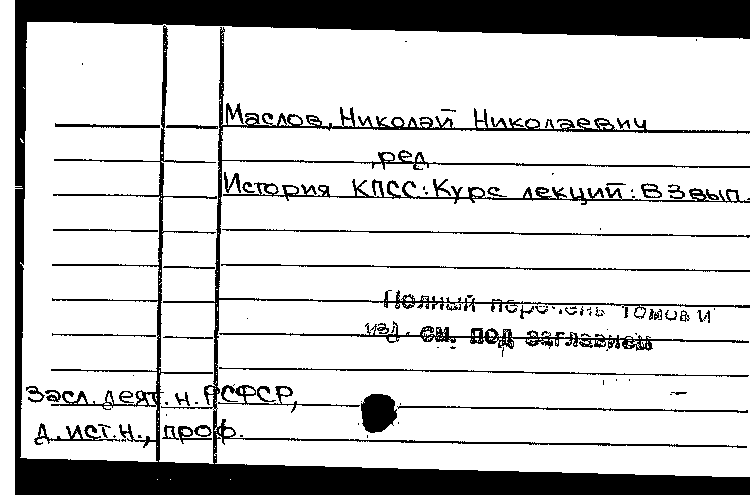 Маслов, Николай Николаевич
ред
История КПСС: Курс лекций: В 3 вып.
Полный перечень томов и
изд. см. под заглавием
Засл. деят. н. РСФСР,
д. ист. н., проф.